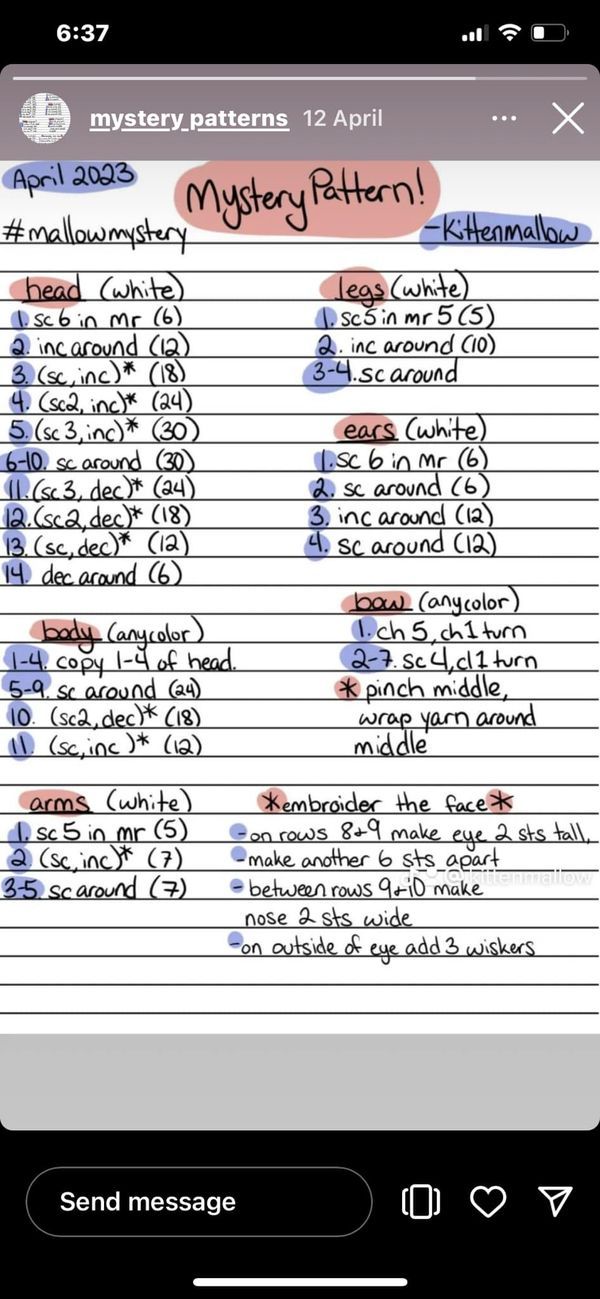 6:37
mystery patterns 12 April
April 2023
Mystery Pattern!
#mallowmystery
-Kittenmallow
head (white)
1. sc 6 in mr (6)
2. inc around (12)
3. (sc, inc)* (18)
4. (sc2, inc)* (24)
5. (sc 3, inc)* (30)
6-10. sc around (30)
11. (sc 3, dec)* (24)
12. (sc2, dec)* (18)
13. (sc, dec)* (12)
14. dec around (6)
legs (white)
1. sc5 in mr 5 (5)
2. inc around (10)
3-4. sc around
ears (white)
1. sc 6 in mr (6)
2. sc around (6)
3. inc around (12)
4. sc around (12)
body (any color)
1-4. copy 1-4 of head.
5-9. sc around (24)
10. (sc2, dec)* (18)
11. (sc, inc)* (12)
bow (any color)
1. ch 5, ch 1 turn
2-7. sc 4, cl 1 turn
* pinch middle,
wrap yarn around
middle
arms (white)
1. sc 5 in mr (5)
2. (sc, inc)* (7)
3-5. sc around (7)
*embroider the face*
-on rows 8+9 make eye 2 sts tall,
-make another 6 sts apart
-between rows 9+10 make
nose 2 sts wide
-on outside of eye add 3 wiskers
@kittenmallow
Send message